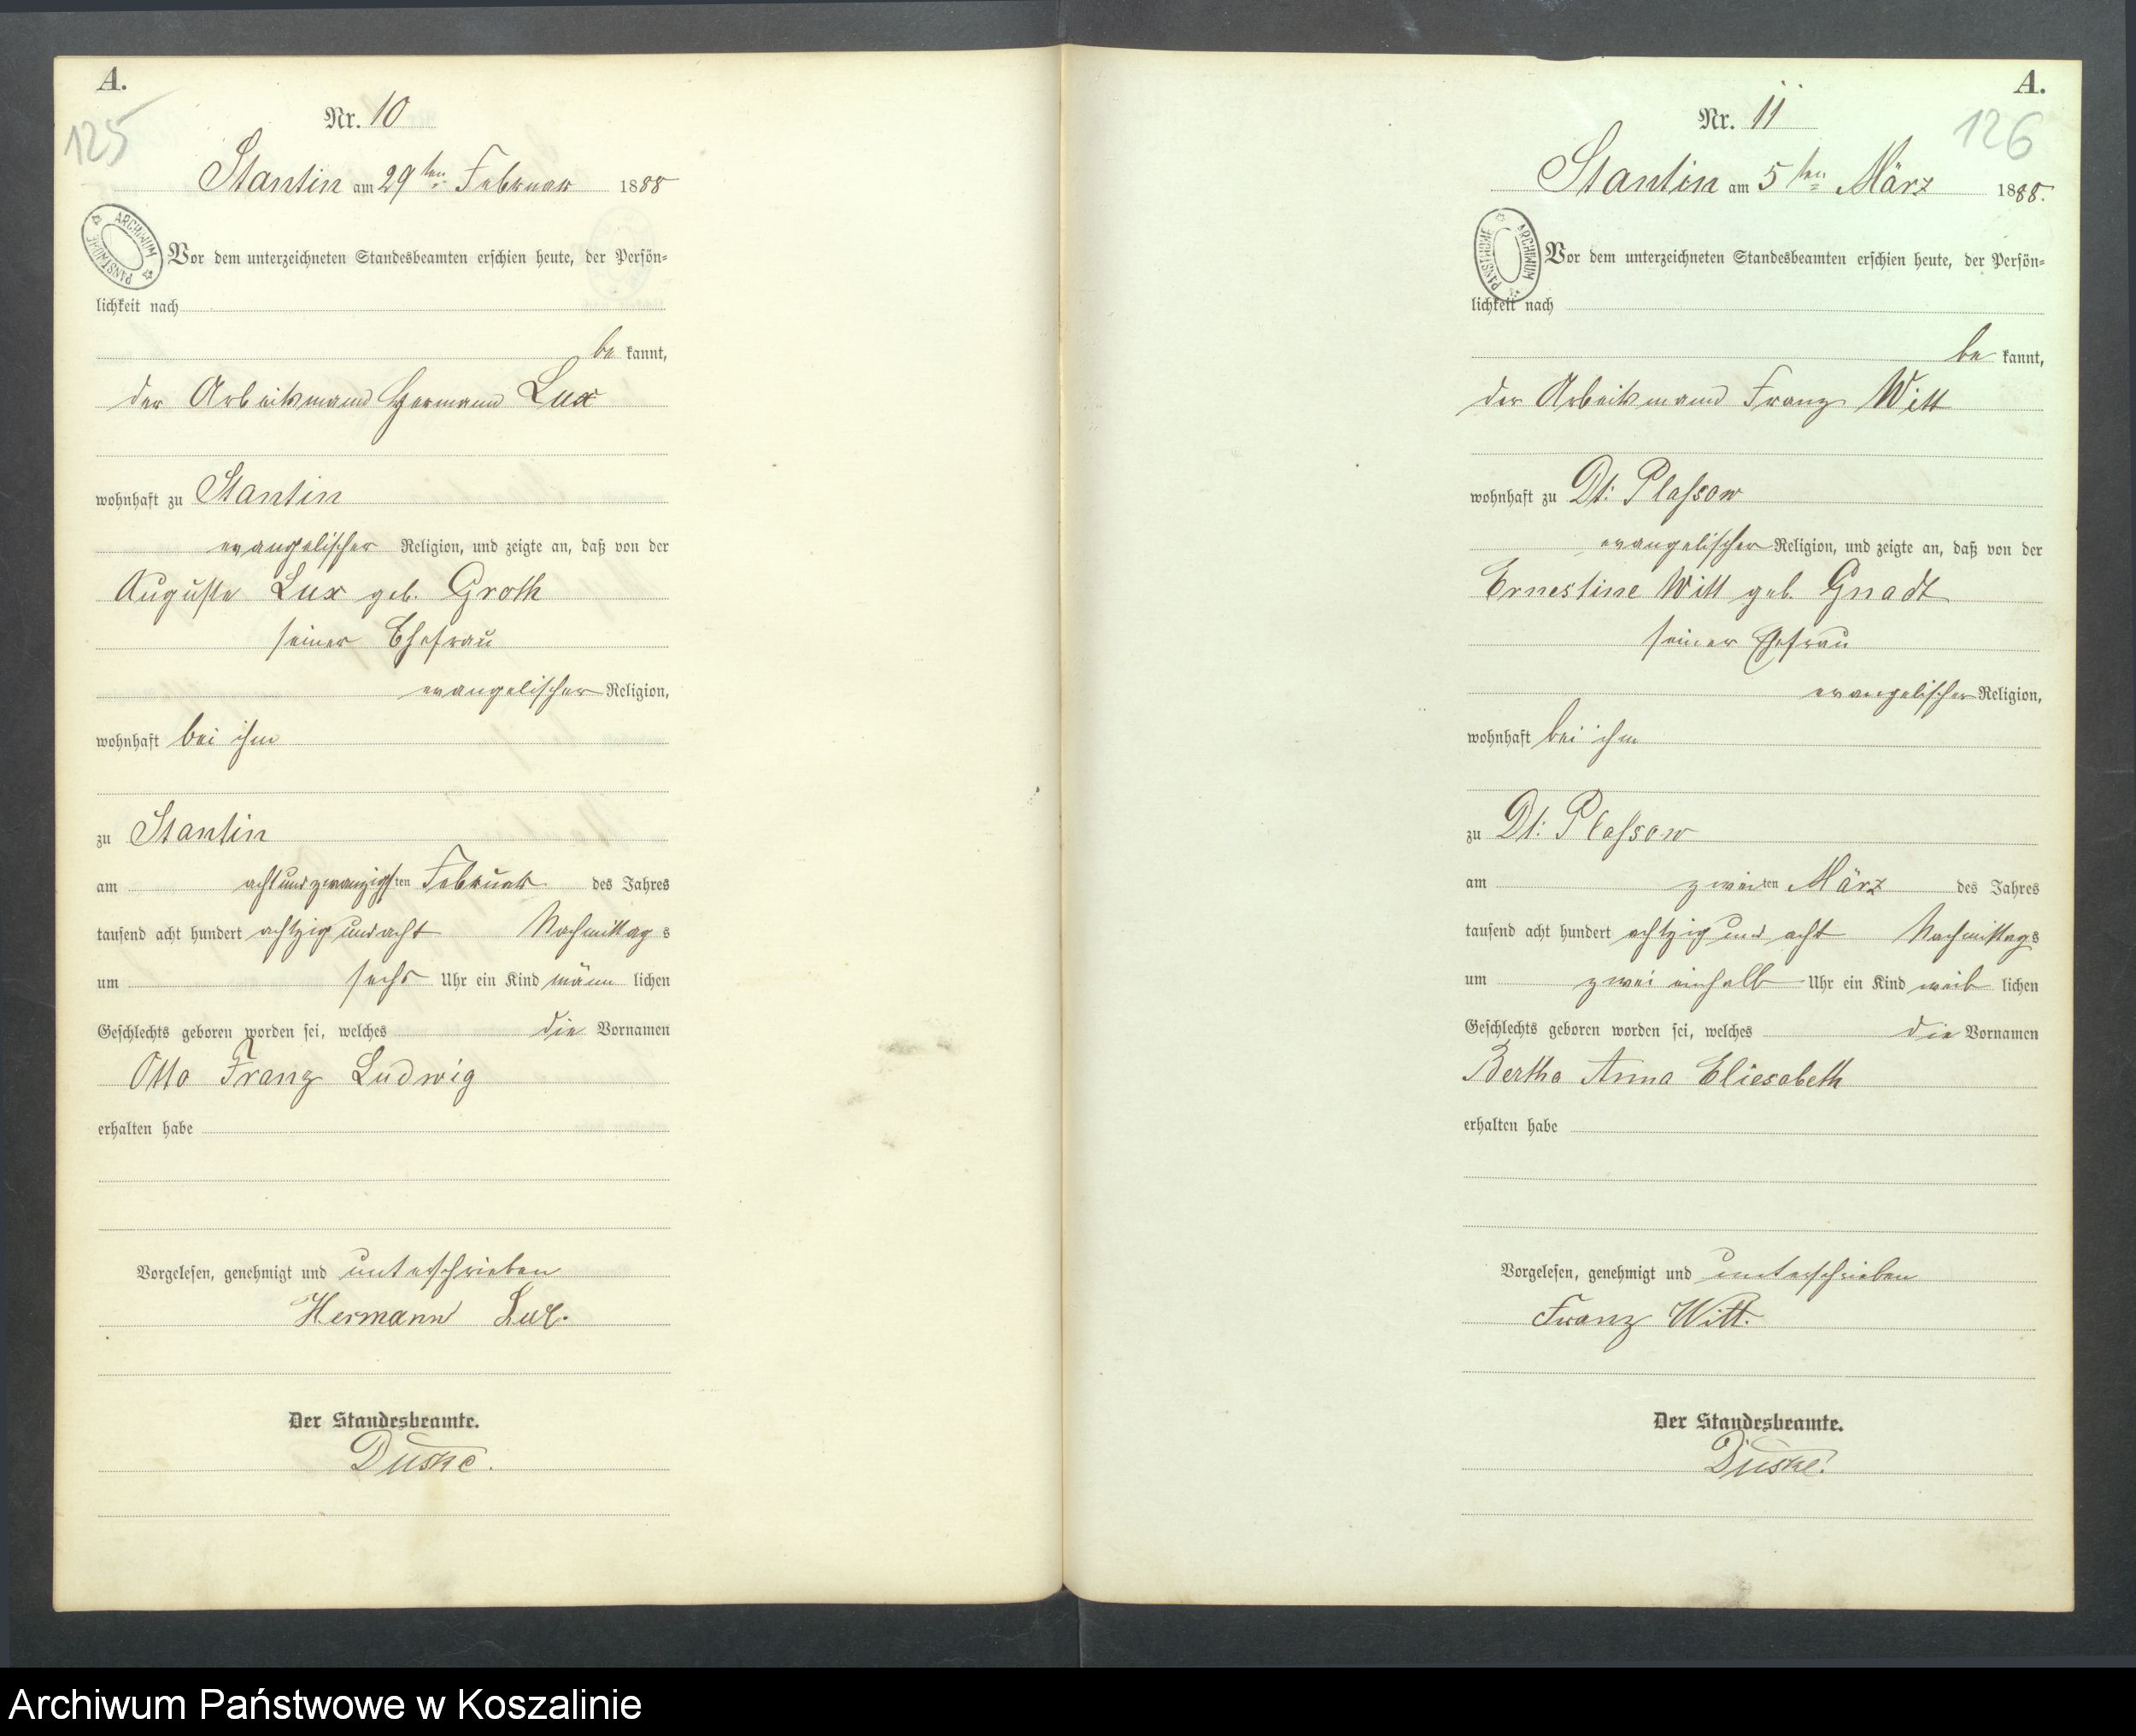 A.
125
Nr. 10
Stantin am 29ten Februar 1888
ARCHIWUM PAŃSTWOWE
Vor dem unterzeichneten Standesbeamten erschien heute, der Persön-
lichkeit nach
be kannt,
der Arbeitsmann Hermann Lux
wohnhaft zu Stantin
evangelischer Religion, und zeigte an, daß von der
Auguste Lux geb. Groth
seiner Ehefrau
evangelischer Religion,
wohnhaft bei ihm
zu Stantin
am achtundzwanzigsten Februar des Jahres
tausend acht hundert achtzig und acht Nachmittag s
um sechs Uhr ein Kind männ lichen
Geschlechts geboren worden sei, welches die Vornamen
Otto Franz Ludwig
erhalten habe
Vorgelesen, genehmigt und unterschrieben
Hermann Lux.
Der Standesbeamte.
Duske.
A.
126
Nr. 11
Stantin am 5ten März 1888.
ARCHIWUM PAŃSTWOWE
Vor dem unterzeichneten Standesbeamten erschien heute, der Persön-
lichkeit nach
be kannt,
der Arbeitsmann Franz Witt
wohnhaft zu Dt: Plassow
evangelischer Religion, und zeigte an, daß von der
Ernestine Witt geb. Gnadt
seiner Ehefrau
evangelischer Religion,
wohnhaft bei ihm
zu Dt: Plassow
am zweiten März des Jahres
tausend acht hundert achtzig und acht Nachmittags
um zwei einhalb Uhr ein Kind weib lichen
Geschlechts geboren worden sei, welches die Vornamen
Bertha Anna Eliesabeth
erhalten habe
Vorgelesen, genehmigt und unterschrieben
Franz Witt.
Der Standesbeamte.
Duske.
Archiwum Państwowe w Koszalinie